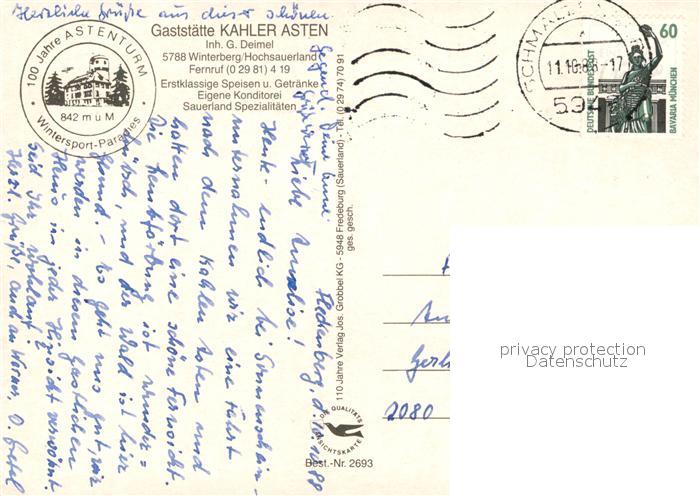 Herzliche Grüße aus dieser schönen
Gegend. Deine Anni
100 Jahre ASTENTURM
842 m ü M
Wintersport-Paradies
Gaststätte KAHLER ASTEN
Inh. G. Deimel
5788 Winterberg/Hochsauerland
Fernruf (0 29 81) 4 19
Erstklassige Speisen u. Getränke
Eigene Konditorei
Sauerland Spezialitäten
SCHMALL
11.10.8 -17
594
60
DEUTSCHE BUNDESPOST
BAVARIA MÜNCHEN
110 Jahre Verlag Jos. Grobbel KG - 5948 Fredeburg (Sauerland) - Tel. (0 29 74) 70 91
ges. gesch.
Fleckenberg, d. 10.10.88
Liebe Annelise!
Heute - endlich bei Sonnenschein -
unternahmen wir eine Fahrt
nach dem Kahlen Asten und
hatten dort eine schöne Fernsicht.
Die Laubfärbung ist wunder=
hübsch, und der Wald ist hier
gesund. - Es geht uns gut, wir
werden in diesem gastlichen
Haus in jeder Hinsicht verwöhnt.
Seid Ihr wohlauf?
Herzl. Grüße, auch an Werner, D. Gretel
DIE QUALITÄTS
ANSICHTSKARTE
Best.-Nr. 2693
2080
privacy protection
Datenschutz